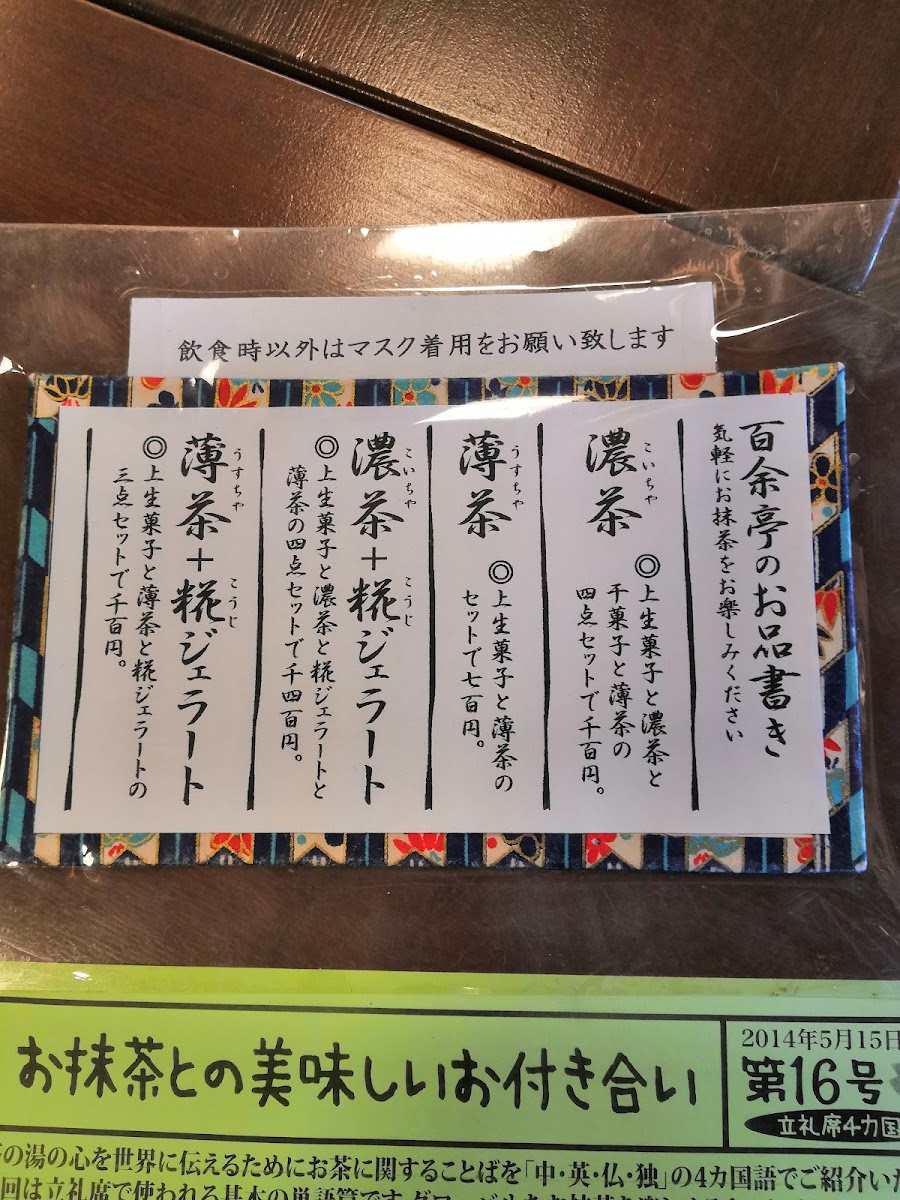 飲食時以外はマスク着用をお願い致します
百余亭のお品書き
気軽にお抹茶をお楽しみください
こいちや
濃茶
◎上生菓子と濃茶と
干菓子と薄茶の
四点セットで千百円。
うすちや
薄茶
◎上生菓子と薄茶の
セットで七百円。
こいちや こうじ
濃茶+糀ジェラート
◎上生菓子と濃茶と糀ジェラートと
薄茶の四点セットで千四百円。
うすちや こうじ
薄茶+糀ジェラート
◎上生菓子と薄茶と糀ジェラートの
三点セットで千百円。
お抹茶との美味しいお付き合い
2014年5月15日
第16号
立礼席4カ国
の湯の心を世界に伝えるためにお茶に関することばを「中・英・仏・独」の4カ国語でご紹介いた
回は立礼席で使われる基本の単語篇です